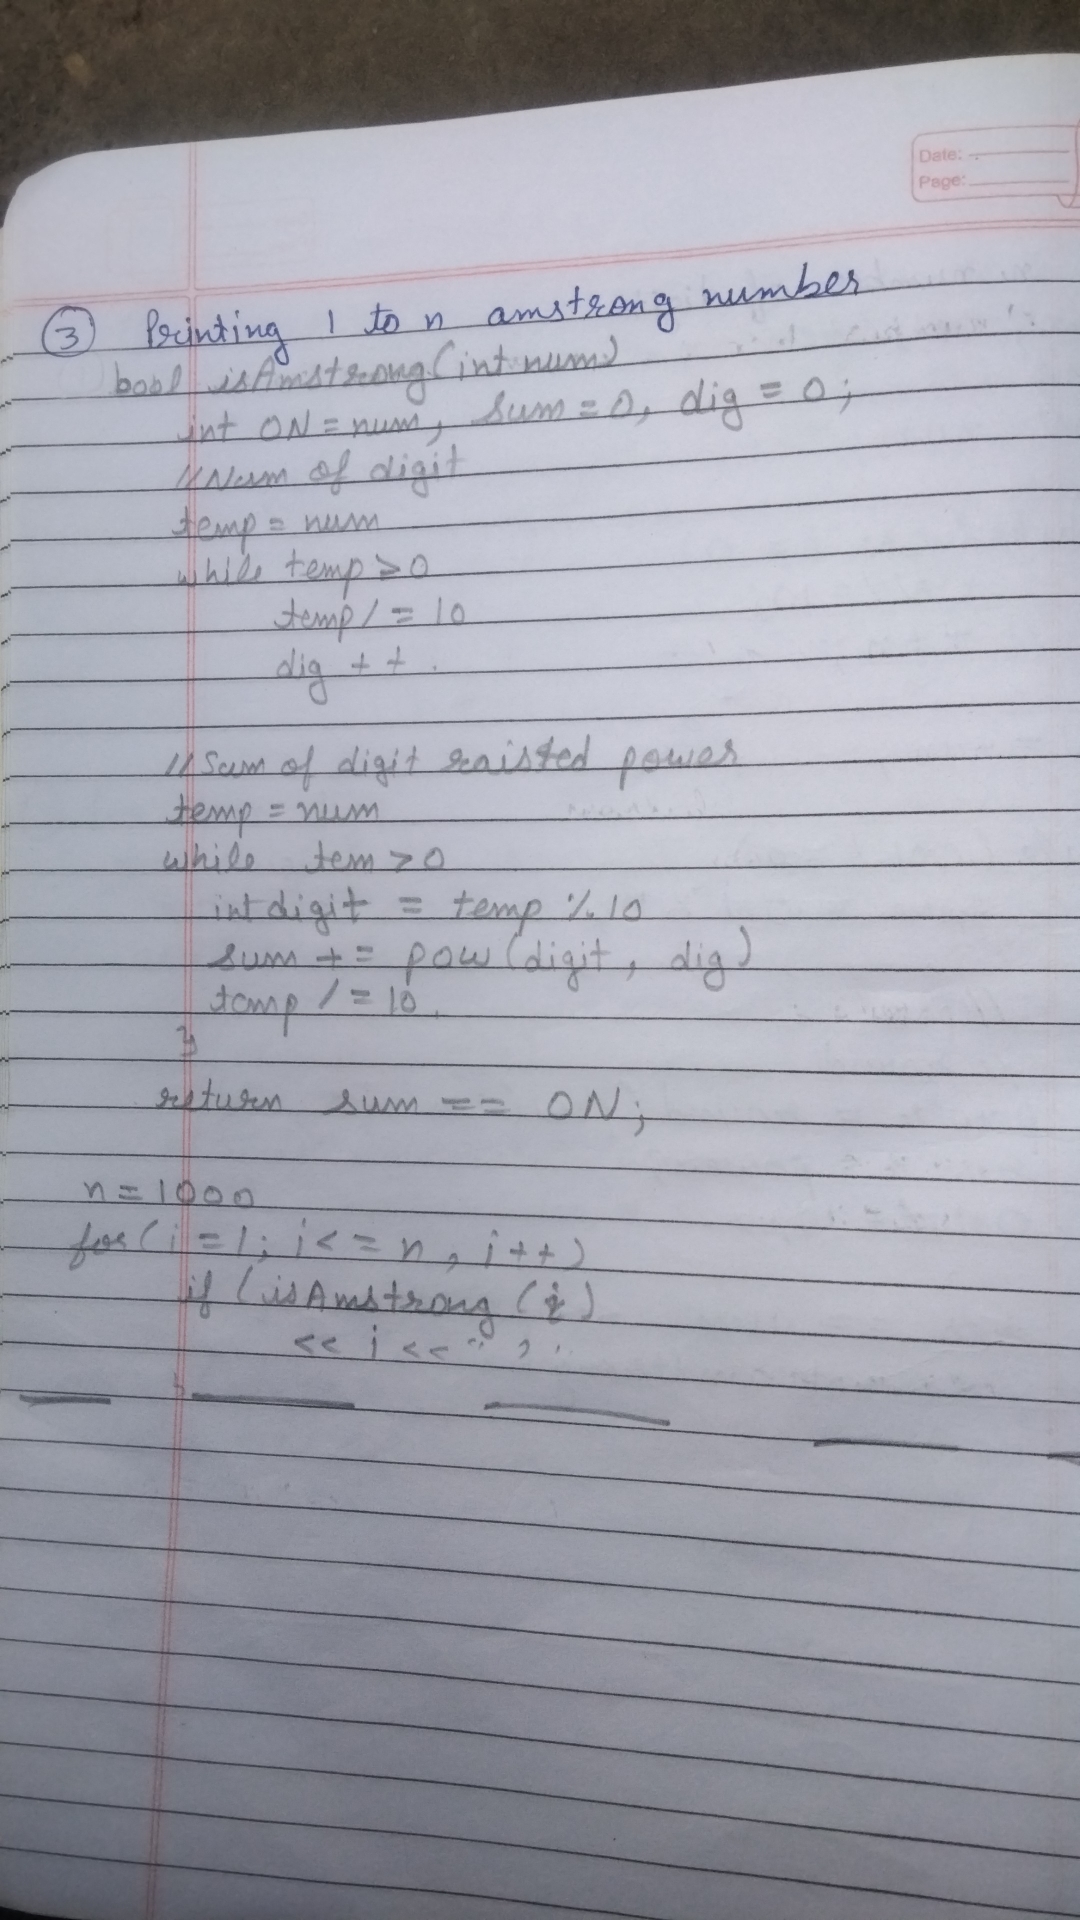 Date:
Page:
③ Printing 1 to n amstrong number
bool isAmstrong(int num)
int ON = num, sum = 0, dig = 0;
// Num of digit
temp = num
while temp > 0
temp / = 10
dig + + .
// Sum of digit raisted power
temp = num
while tem > 0
int digit = temp % 10
sum + = pow (digit, dig)
temp / = 10.
}
return sum == ON;
n = 1000
for (i = 1; i < = n, i + +)
if (isAmstrong (i)
<< i << " ".
}